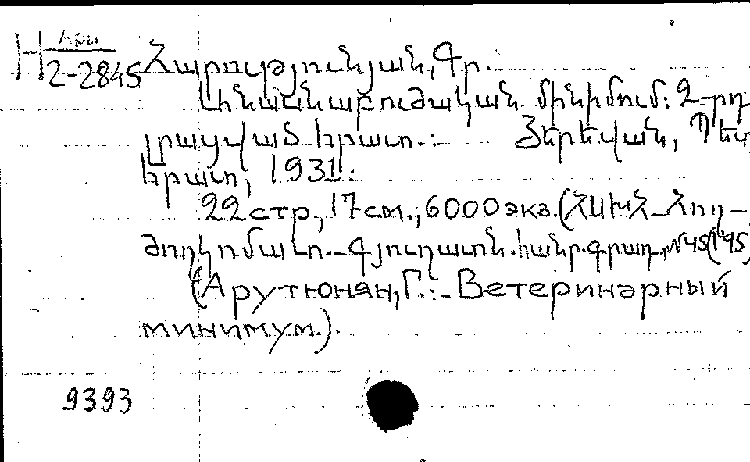 H Арм
2-2845 Հարությունյան, Գր.
մինիմում: 2-րդ
լրացված հրատ.: Յերեվան, Պետ
հրատ, 1931:
22 стр, 17 см.; 6000 экз. (ՀՍԽՀ_Հող-
ժողկոմատ._Գյուղատնտ. հանր. գրադ. №45(145)
(Арутюнян, Г.:_Ветеринарный
минимум.).
9393